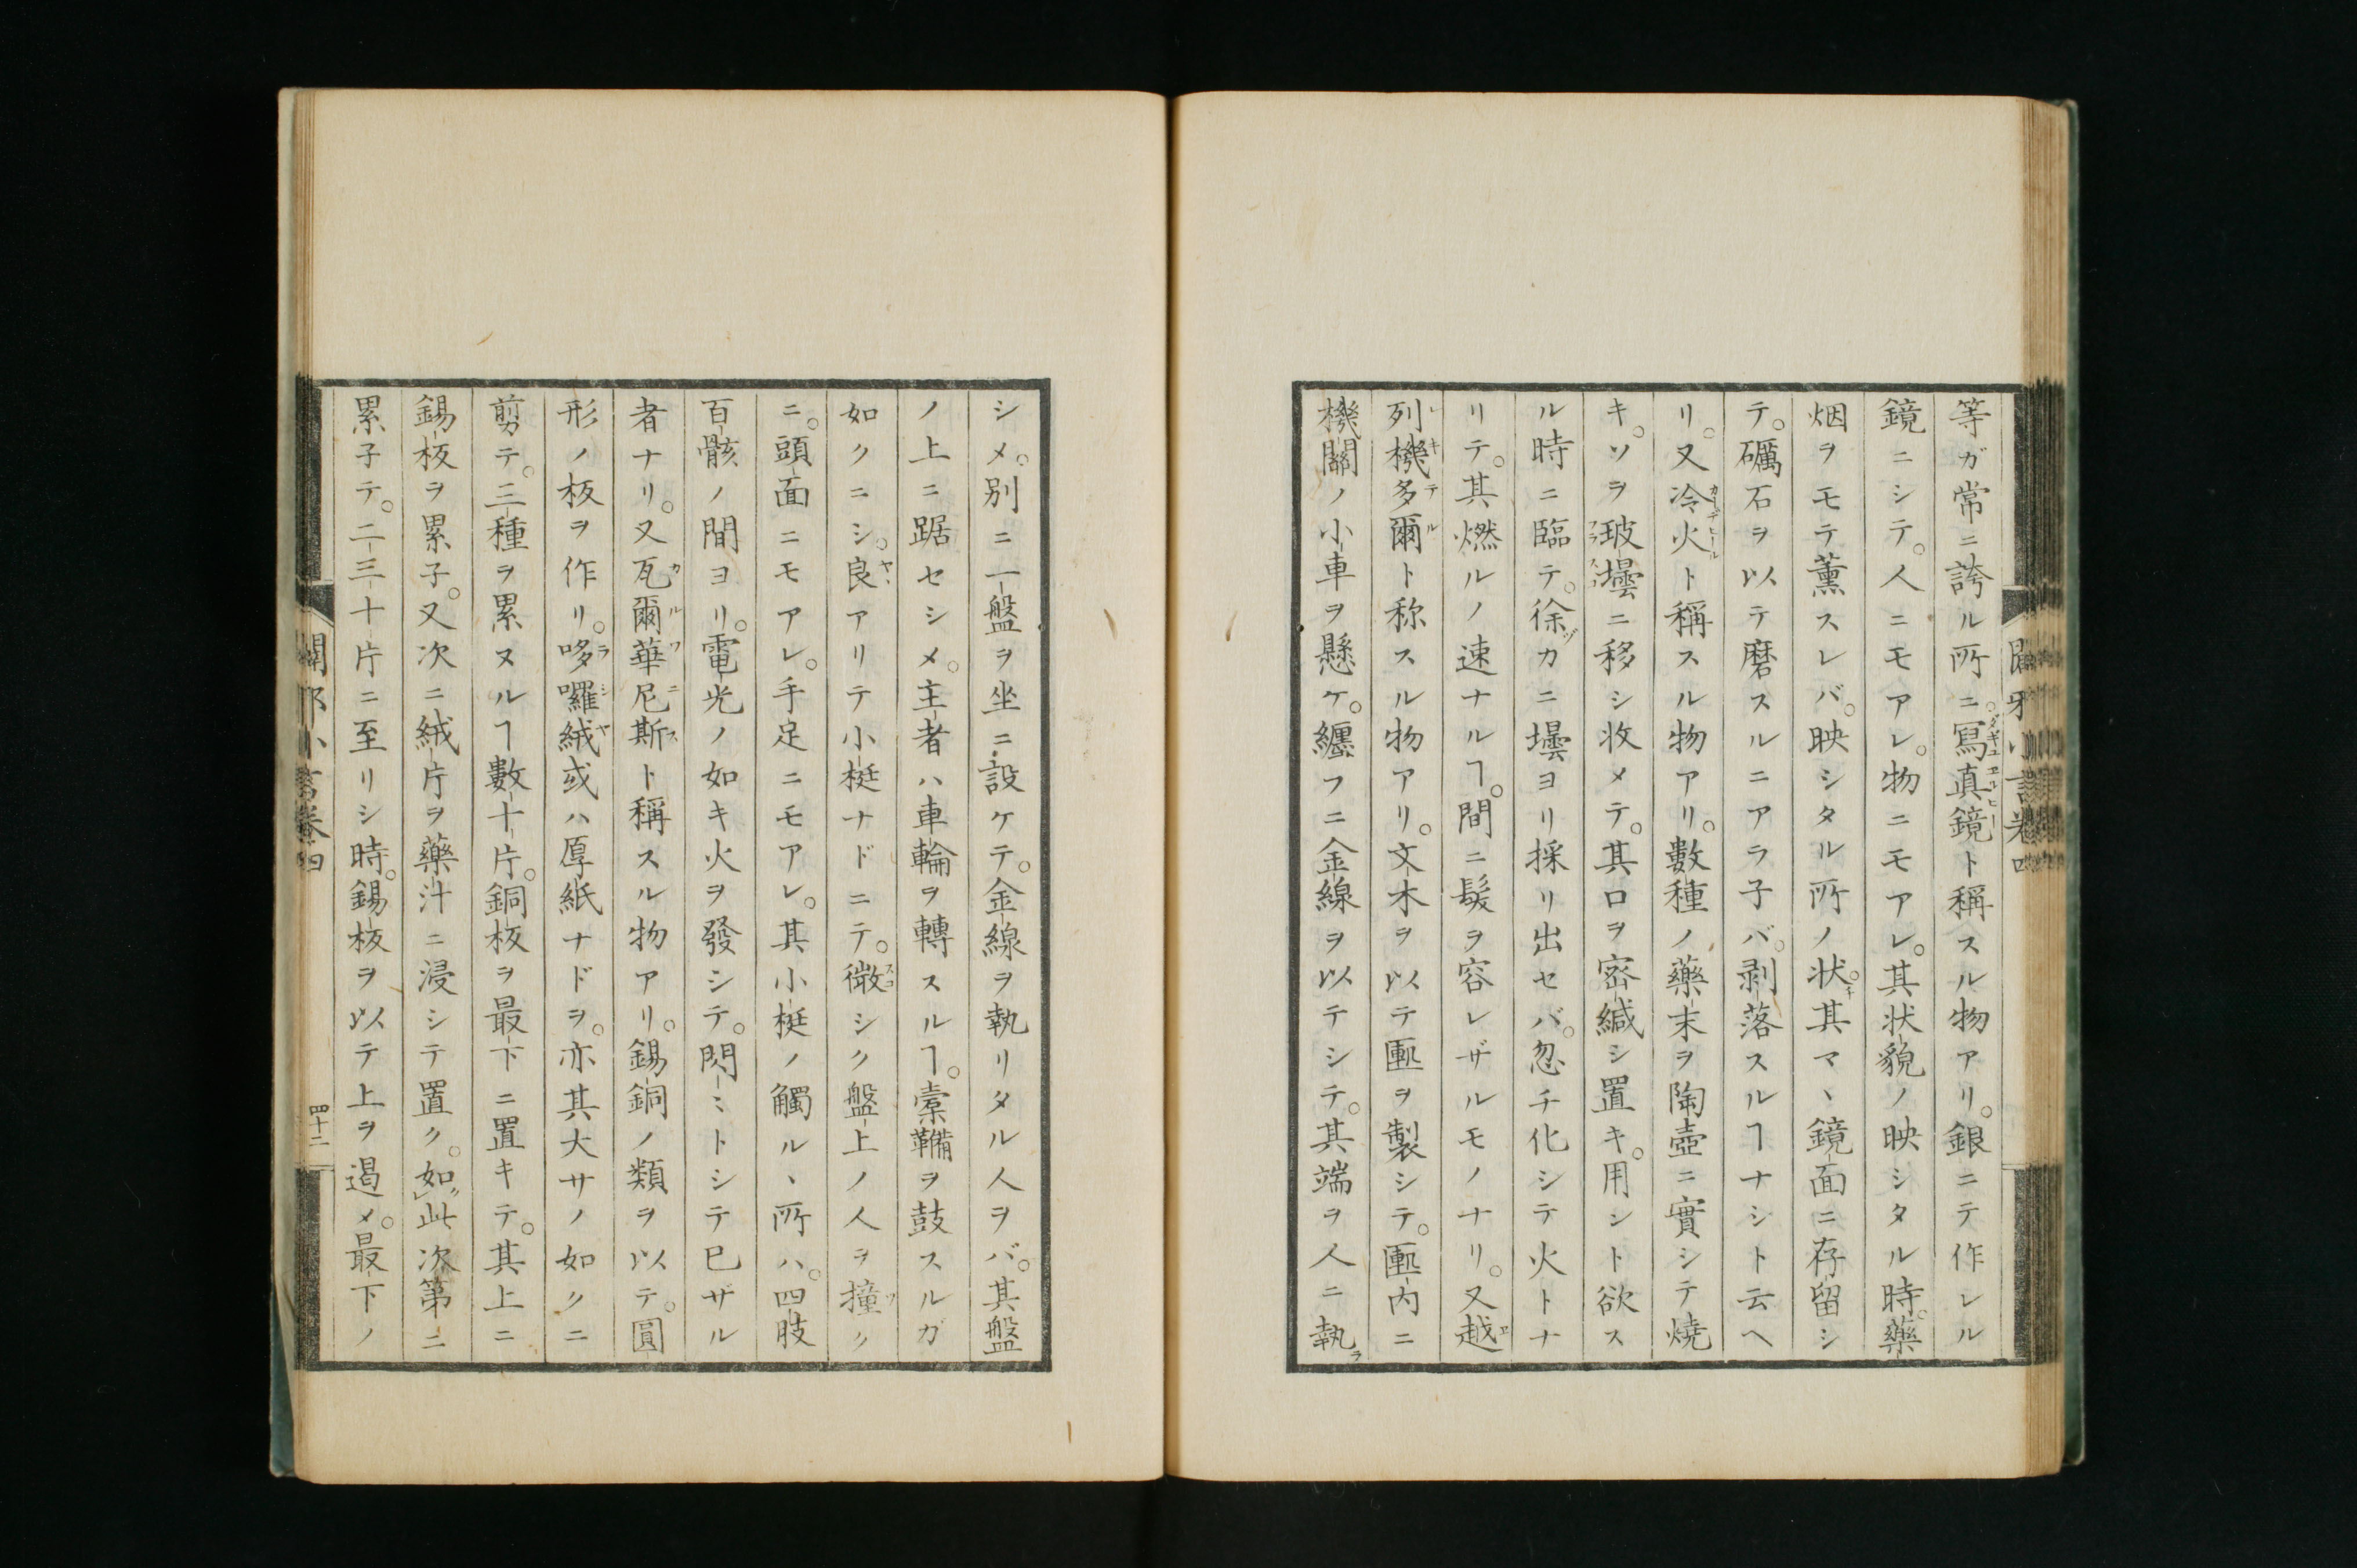 等ガ常ニ誇ル所ニ。寫真鏡ト稱スル物アリ。銀ニテ作レル
鏡ニシテ。人ニモアレ。物ニモアレ。其状貌ノ映シタル時。藥
烟ヲモテ薫スレバ。映シタル所ノ状。其マヽ鏡面ニ存留シ
テ。礪石ヲ以テ磨スルニアラ子バ。剥落スルヿナシト云ヘ
リ。又冷火ト稱スル物アリ。數種ノ藥末ヲ陶壺ニ實シテ燒
キ。ソヲ玻壜ニ移シ收メテ。其口ヲ密緘シ置キ。用ント欲ス
ル時ニ臨テ。徐カニ壜ヨリ採リ出セバ。忽チ化シテ火トナ
リテ。其燃ルノ速ナルヿ。間ニ髮ヲ容レザルモノナリ。又越
列機多爾ト称スル物アリ。文木ヲ以テ匭ヲ製シテ。匭内ニ
機關ノ小車ヲ懸ケ。纏フニ金線ヲ以テシテ。其端ヲ人ニ執ラ
シメ。別ニ一盤ヲ坐ニ設ケテ。金線ヲ執リタル人ヲバ。其盤
ノ上ニ踞セシメ。主者ハ車輪ヲ轉スルヿ。橐鞴ヲ鼓スルガ
如クニシ。良アリテ小梃ナドニテ。微シク盤上ノ人ヲ撞ク
ニ。頭面ニモアレ。手足ニモアレ。其小梃ノ觸ルヽ所ハ。四肢
百骸ノ間ヨリ。電光ノ如キ火ヲ發シテ。閃〻トシテ已ザル
者ナリ。又瓦爾華尼斯ト稱スル物アリ。錫銅ノ類ヲ以テ。圓
形ノ板ヲ作リ。哆囉絨或ハ厚紙ナドヲ。亦其大サノ如クニ
剪テ。三種ヲ累ヌルヿ數十片。銅板ヲ最下ニ置キテ。其上ニ
錫板ヲ累子。又次ニ絨片ヲ藥汁ニ浸シテ置ク。如此次第ニ
累子テ。二三十片ニ至リシ時。錫板ヲ以テ上ヲ遏メ。最下ノ
四十二